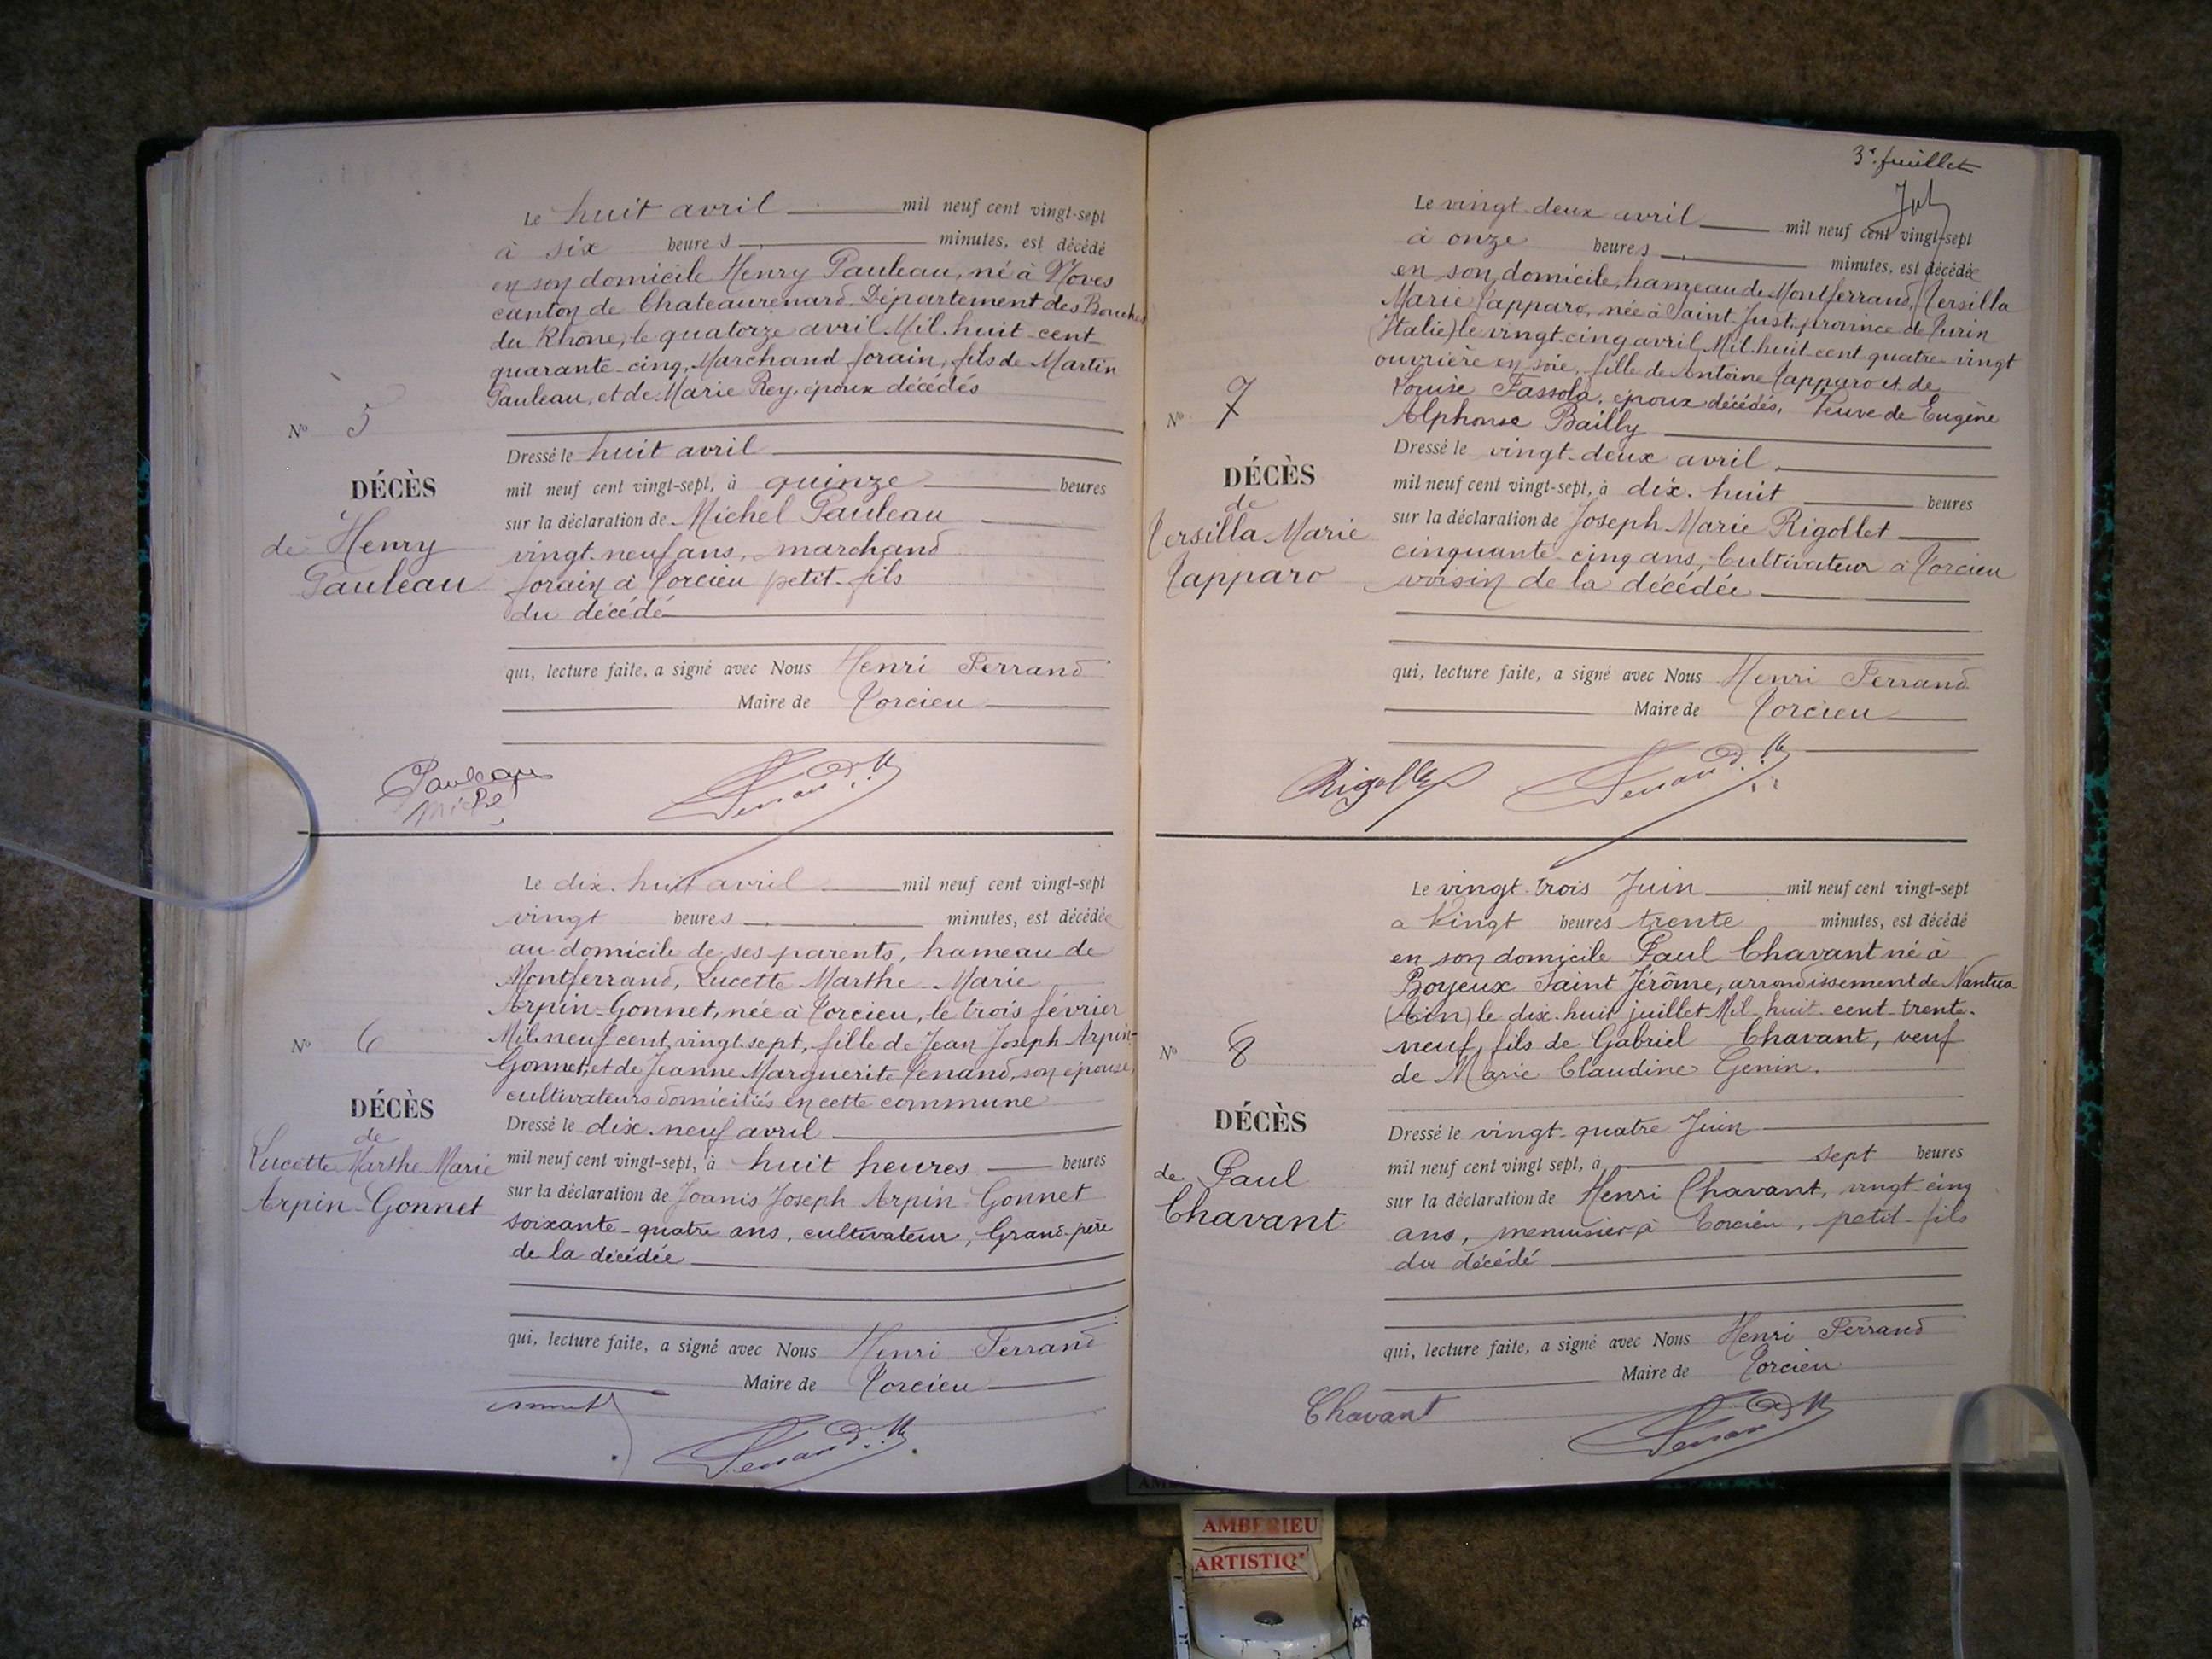 Le huit avril mil neuf cent vingt-sept
à six heures minutes, est décédé
en son domicile Henry Pauleau, né à Noves
canton de Chateaurenard Département des Bouches
du Rhône, le quatorze avril Mil huit cent
quarante-cinq, Marchand forain, fils de Martin
Pauleau, et de Marie Rey, époux décédés
No 5
Dressé le huit avril
DÉCÈS
mil neuf cent vingt-sept, à quinze heures
sur la déclaration de Michel Pauleau
de Henry
vingt-neuf ans, marchand
Pauleau
forain à Torcieu petit-fils
du décédé
qui, lecture faite, a signé avec Nous Henri Ferrand
Maire de Torcieu
Pauleau
Michel
Le dix-huit avril mil neuf cent vingt-sept
vingt heures minutes, est décédée
au domicile de ses parents, hameau de
Montferrand, Lucette Marthe Marie
Arpin-Gonnet, née à Torcieu, le trois février
No 6
Mil neuf cent vingt-sept, fille de Jean Joseph Arpin-
Gonnet, et de Jeanne Marguerite Tenand, son épouse,
cultivateurs domiciliés en cette commune
DÉCÈS
Dressé le dix-neuf avril
de
Lucette Marthe Marie
mil neuf cent vingt-sept, à huit heures heures
Arpin-Gonnet
sur la déclaration de Joanis Joseph Arpin-Gonnet
soixante-quatre ans, cultivateur, Grand-père
de la décédée
qui, lecture faite, a signé avec Nous Henri Ferrand
Maire de Torcieu
3e feuillet
Le vingt-deux avril mil neuf cent vingt-sept
à onze heures minutes, est décédée
en son domicile, hameau de Montferrand, Tersilla
Marie Tapparo, née à Saint-Just, province de Turin
(Italie) le vingt-cinq avril Mil huit cent quatre-vingt
ouvrière en soie, fille de Antoine Tapparo et de
Louise Fassola, époux décédés, Veuve de Eugène
No 7
Alphonse Bailly
Dressé le vingt-deux avril
DÉCÈS
mil neuf cent vingt-sept, à dix-huit heures
de
Tersilla Marie
sur la déclaration de Joseph-Marie Rigollet
Tapparo
cinquante-cinq ans, Cultivateur à Torcieu
voisin de la décédée
qui, lecture faite, a signé avec Nous Henri Ferrand
Maire de Torcieu
Le vingt-trois Juin mil neuf cent vingt-sept
a Vingt heures trente minutes, est décédé
en son domicile Paul Chavant né à
Boyeux Saint Jérôme, arrondissement de Nantua
(Ain) le dix-huit juillet Mil huit cent trente-
No 8
neuf, fils de Gabriel Chavant, veuf
de Marie Claudine Genin.
DÉCÈS
Dressé le vingt-quatre Juin
de Paul
mil neuf cent vingt sept, à sept heures
Chavant
sur la déclaration de Henri Chavant, vingt-cinq
ans, menuisier à Torcieu, petit-fils
du décédé
qui, lecture faite, a signé avec Nous Henri Ferrand
Maire de Torcieu
Chavant
AMBERIEU
ARTISTIQ